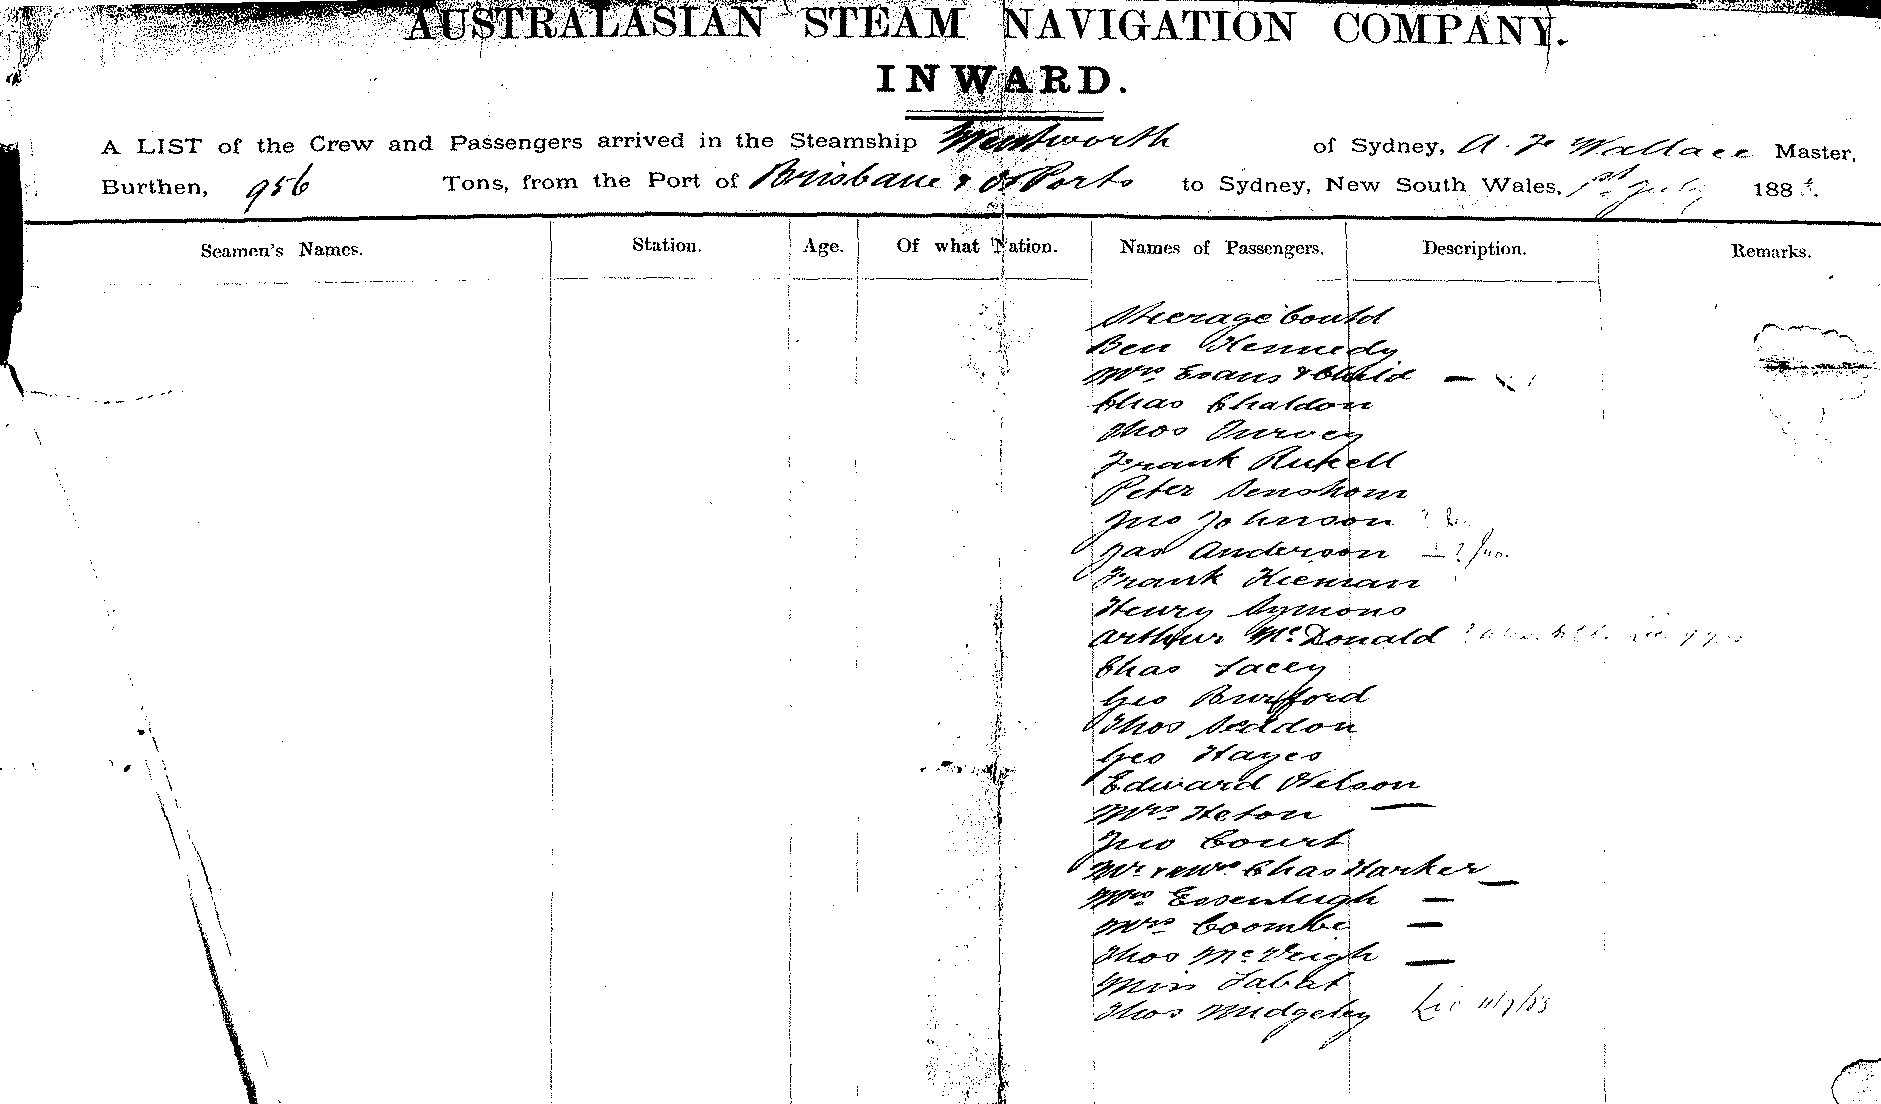 AUSTRALASIAN STEAM NAVIGATION COMPANY.
INWARD.
A LIST of the Crew and Passengers arrived in the Steamship Wentworth of Sydney, A. F. Wallace Master,
Burthen, 956 Tons, from the Port of Brisbane & Ports to Sydney, New South Wales, 1st July 188
Seamen's Names. Station. Age. Of what Nation. Names of Passengers. Description. Remarks.
Steerage Contd
Ben Kennedy
Mrs Evans & Child —
Chas Chaldon
Thos Purvey
Frank
Peter
Jno Johnson
Jas Anderson
Frank Kiernan
Henry Symons
Arthur McDonald
Chas Lacey
Geo Burfford
Thos Seddon
Geo Hayes
Edward Nelson
Mrs Heton —
Jno Court
Mr & Mrs Chas Harker —
Mrs Essenhigh —
Mrs Coombe —
Thos McVeigh —
Miss Labat
Thos Midgeley 11/7/83